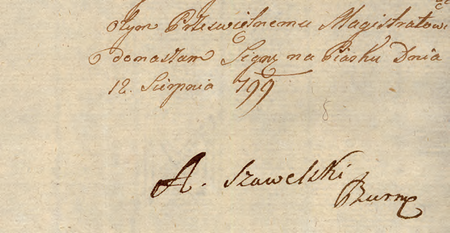 tym Prześwietnemu Magistratowi
donaszam Sign na Piasku Dnia
12. Sierpnia 799
A. Szawelski
Burm